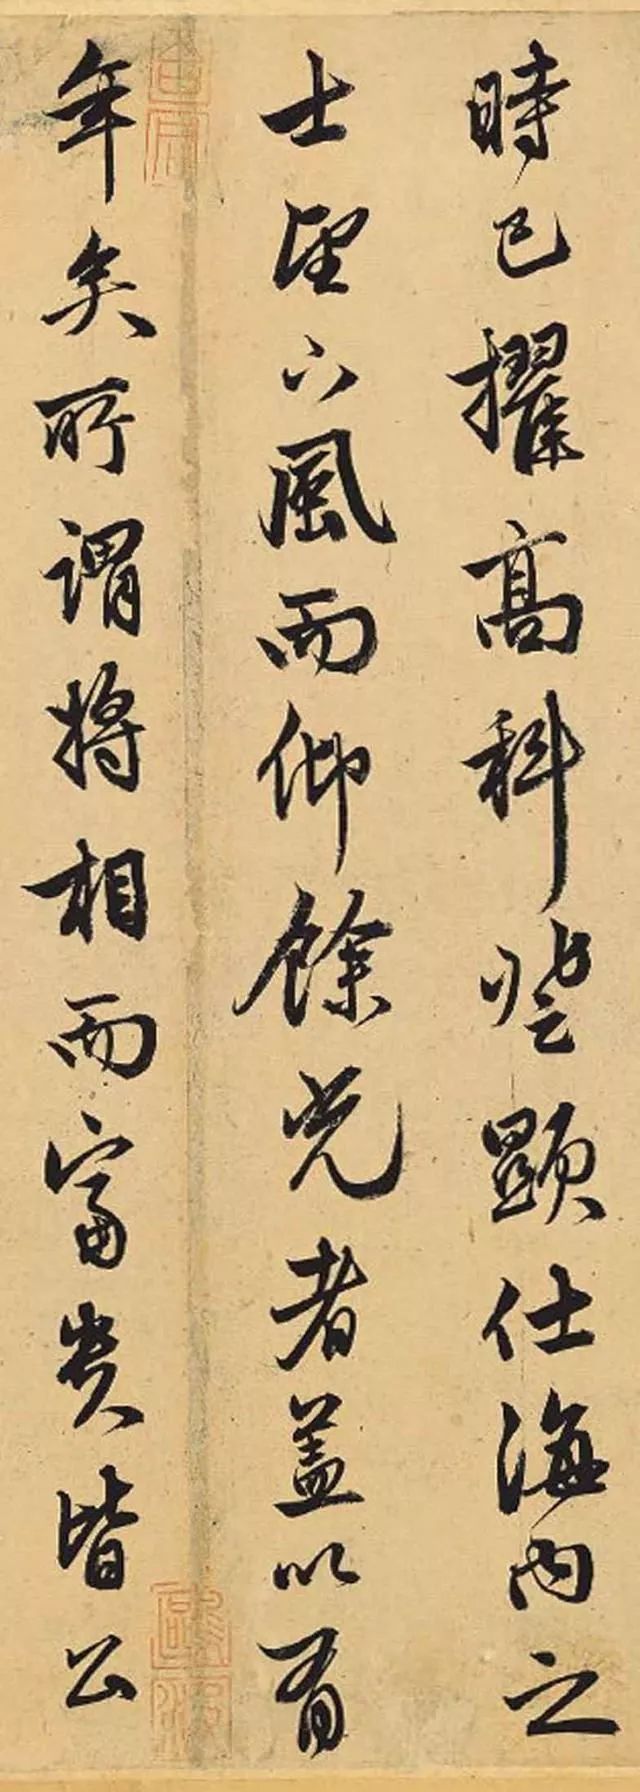 時已擢高科登顯仕海內之
士望下風而仰餘光者蓋以有
年矣所謂將相而富貴皆公